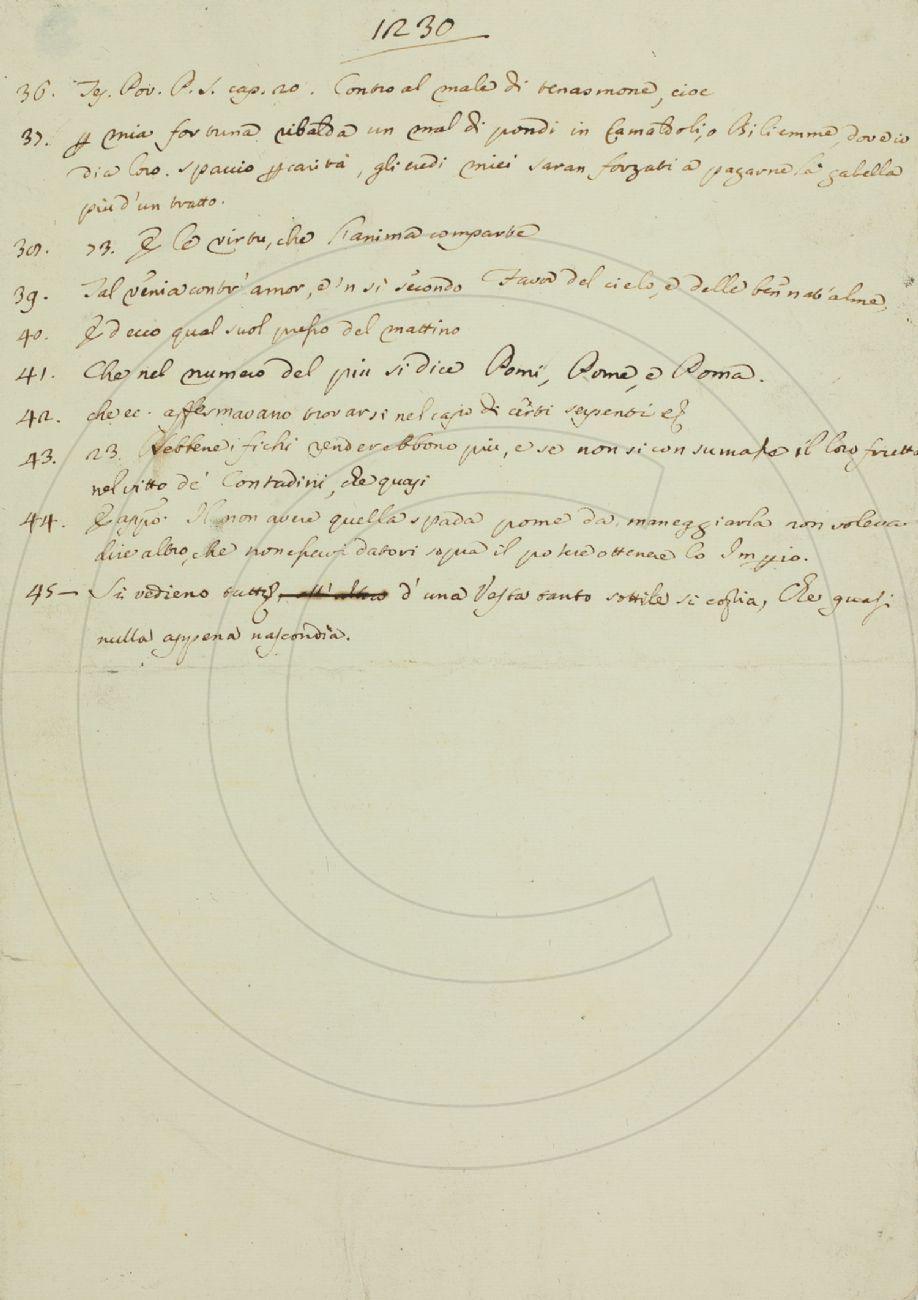 1230
36. Tes. Pov. P. S. cap. 20. Contro al male di tenasmone, cioe
37. p mia fortuna ribalda un mal di pondi in Camaldoli, o Biliemme, dove io
dia loro spaccio p carità, gli eredi miei saran forzati a pagarne la gabella
più d'un tratto.
38. 73. E le virtù, che l'anima comparte
39. Tal venia contr' amor, e 'n si secondo Favor del cielo, e delle ben nat' alme,
40. Ed ecco qual suol presso del mattino
41. Che nel numero del più si dice Pomi, Pome, e Poma.
42. che ec. affermavano trovarsi nel capo di certi serpenti
43. 23. Sebbene i fichi renderebbono più, e se non si consumasse il loro frutto
nel vitto de' Contadini, che quasi
44. E appo. Il non avere quella spada pome da maneggiarla non voleva
dire altro, che non esservi datori sopra il potere ottenere lo Impio.
45 — Si vedieno tutte, d'una Vesta tanto sottile si coglia, Che quasi
nulla appena nascondia.